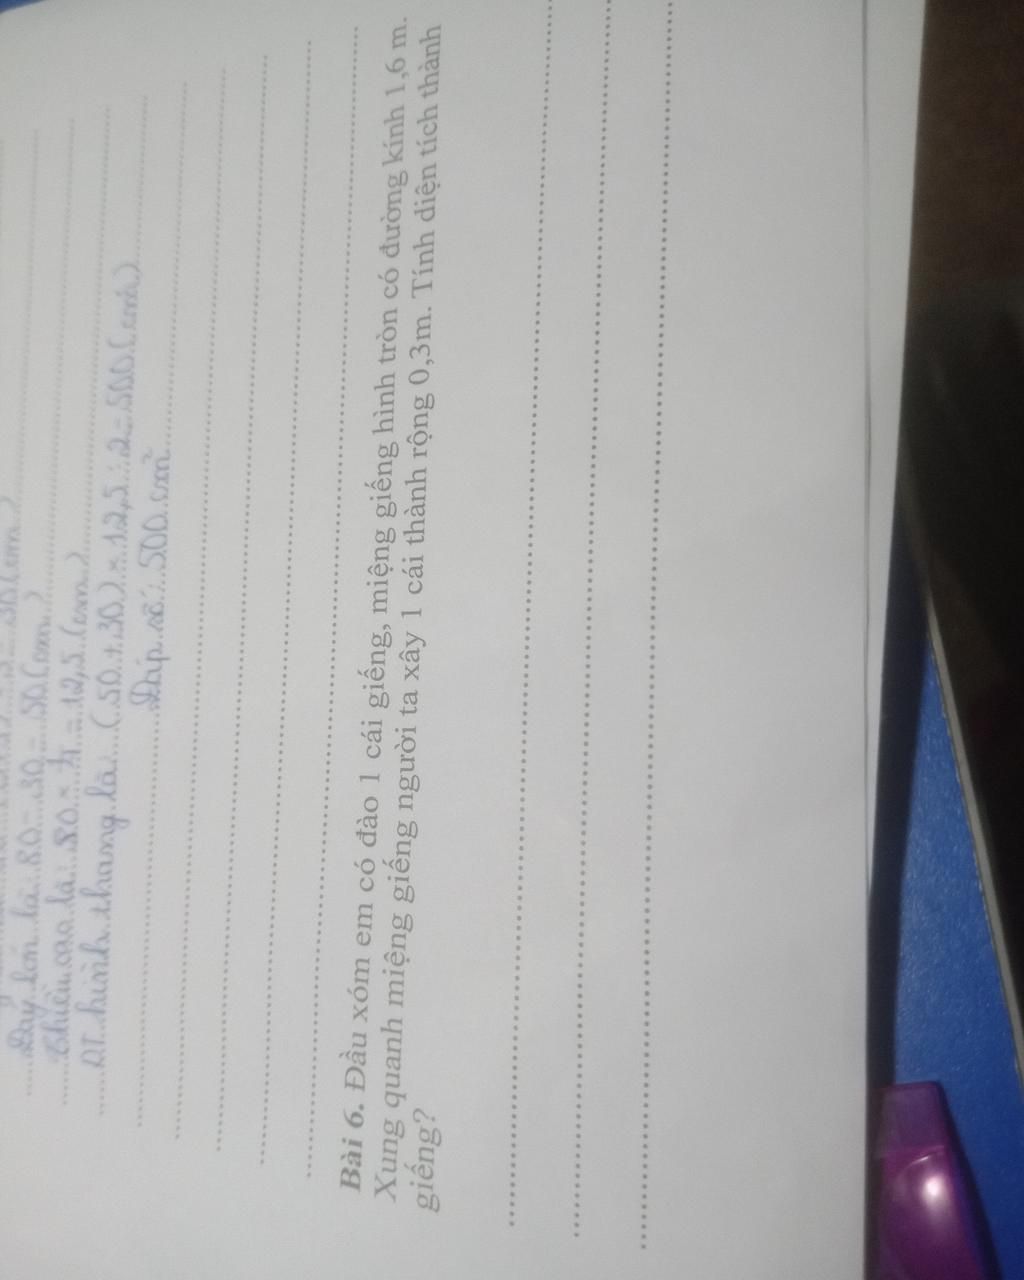 Đáy lớn là: 80 - 30 = 50 (cm)
Chiều cao là: 80 × = 12,5 (cm)
DT hình thang là: (50 + 30) × 12,5 : 2 = 500 (cm²)
Đáp số: 500 cm²
Bài 6. Đầu xóm em có đào 1 cái giếng, miệng giếng hình tròn có đường kính 1,6 m.
Xung quanh miệng giếng người ta xây 1 cái thành rộng 0,3m. Tính diện tích thành
giếng?